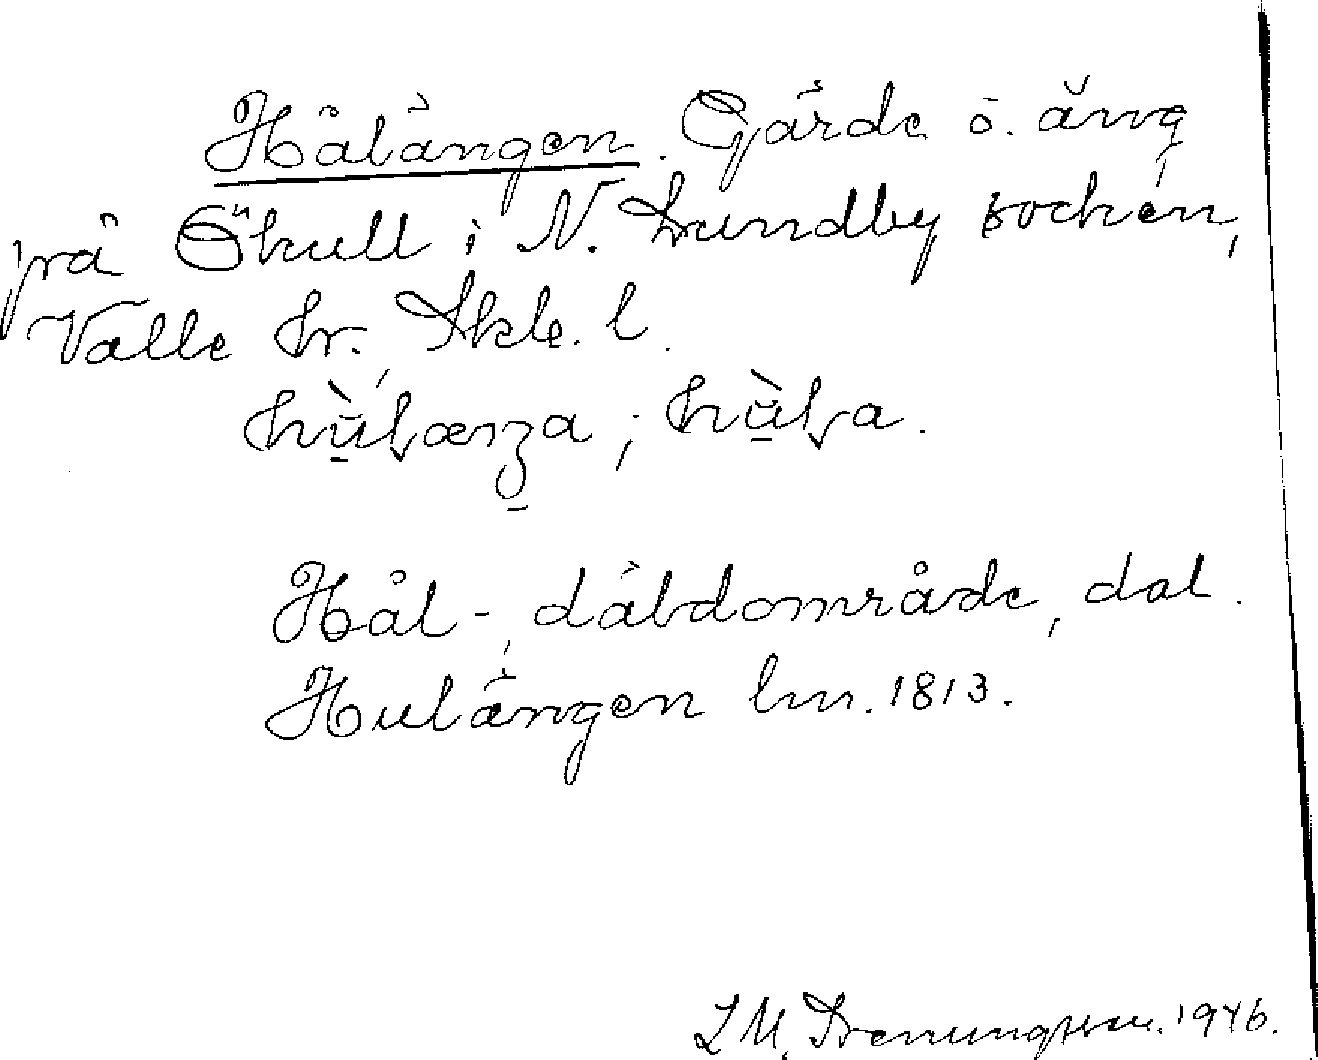 Hålängen. Gärde o. äng
på Ökull i N. Lundby socken,
Valle hr. Skb. l.
Hål-, dåldområde, dal.
Hulängen lm. 1813.
L M. 1946.